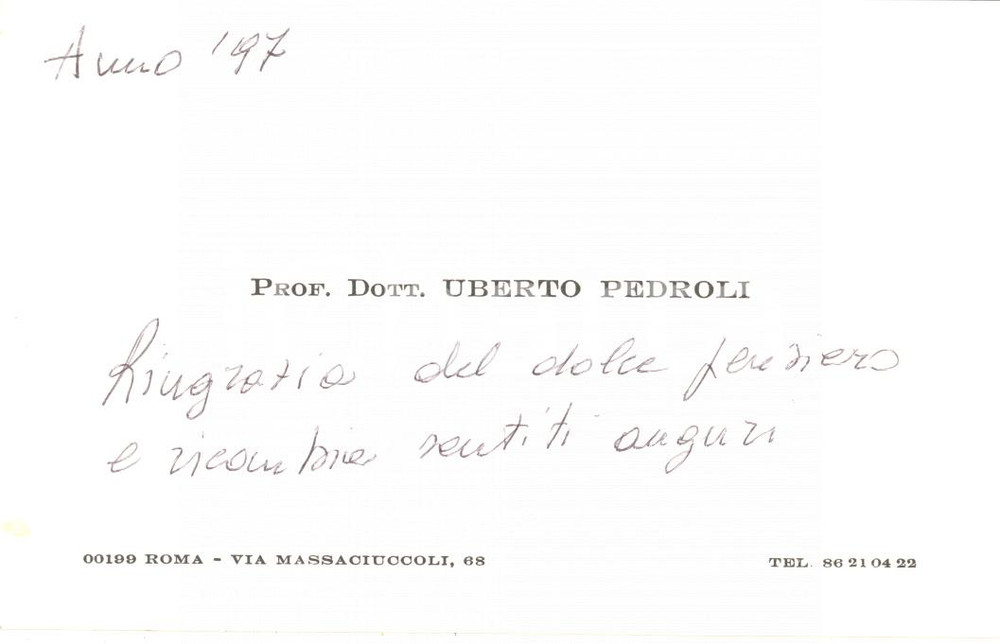 Anno '97
PROF. DOTT. UBERTO PEDROLI
Ringrazia del dolce pensiero
e ricambia sentiti auguri
00199 ROMA - VIA MASSACIUCCOLI, 68
TEL. 86 21 04 22